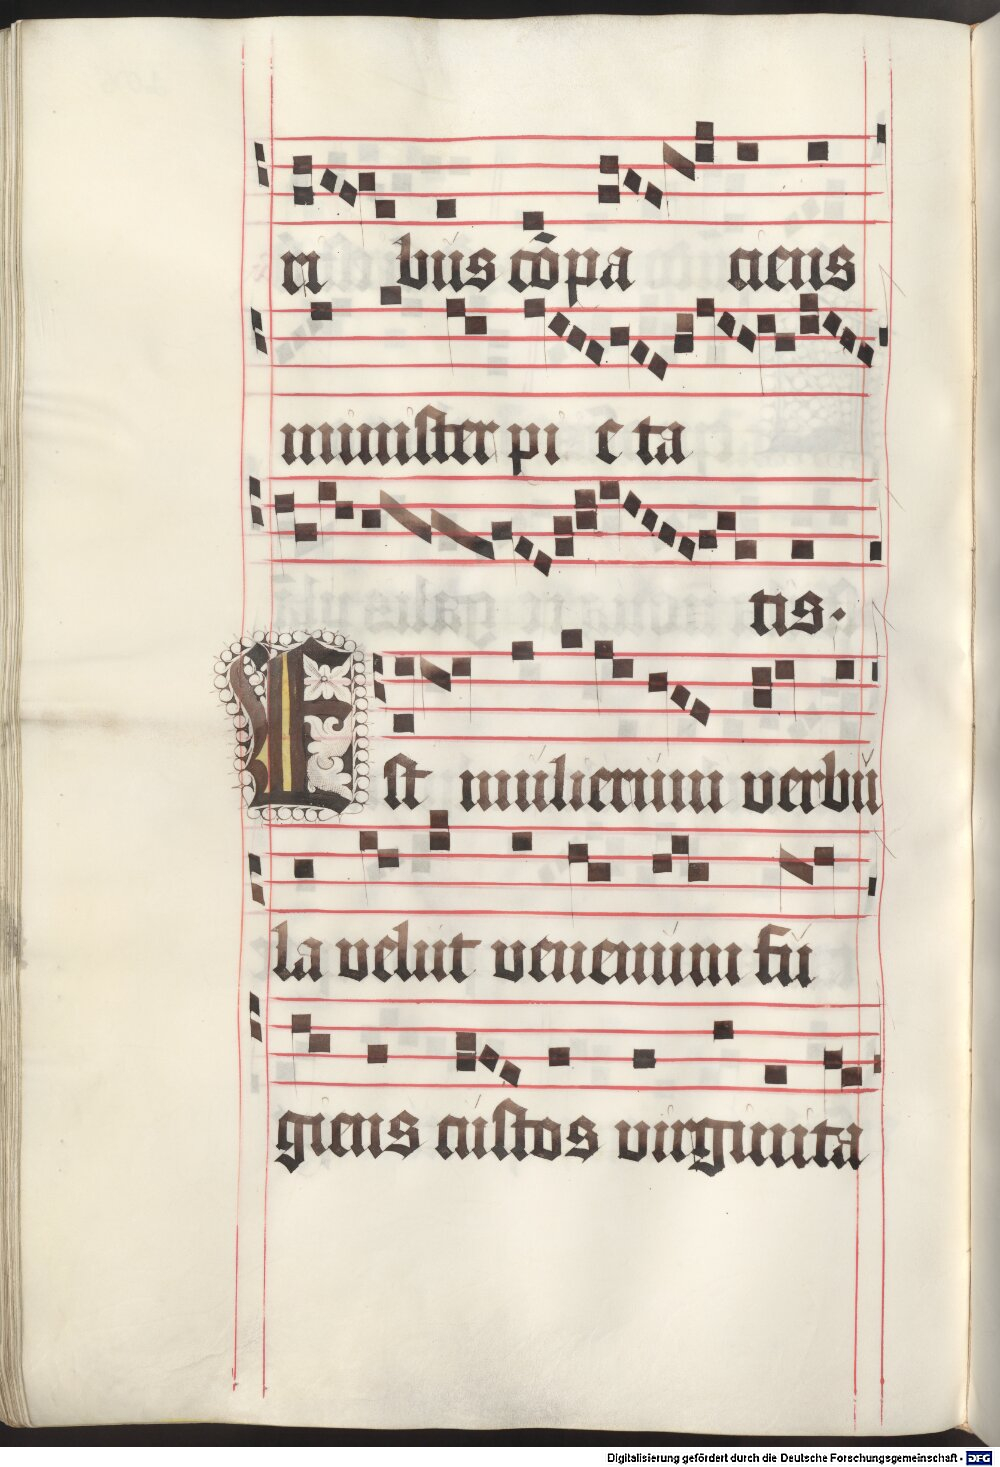 ri bus cōpa tiens
minister pi e ta
tis·
Est mulierum verbū
la velut venenum fu
giens custos virginita
Digitalisierung gefördert durch die Deutsche Forschungsgemeinschaft - DFG